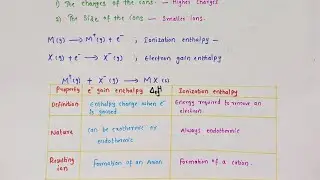 1) The charges of the ions — Higher charges
2) The Size of the ions — Smaller ions.
M(g) ⟶ M⁺(g) + e⁻ ; Ionization enthalpy
X(g) + e⁻ ⟶ X⁻(g) ; Electron gain enthalpy
M⁺(g) + X⁻(g) ⟶ MX(s)
Property e⁻ gain enthalpy ΔegH Ionization enthalpy
Definition Enthalpy change when e⁻ is gained Energy required to remove an electron.
Nature can be exothermic or endothermic Always endothermic
Resulting ion Formation of an Anion Formation of a cation.